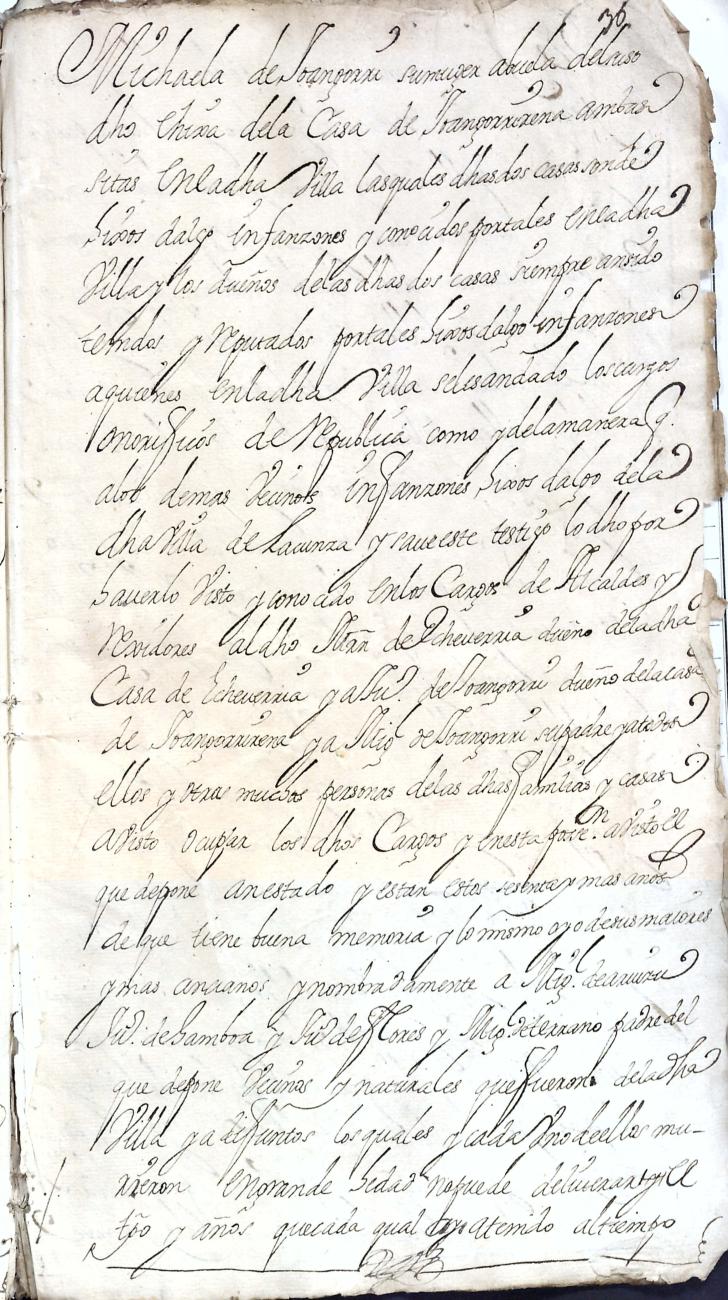 36
Michaela de Goangorri su muger abuela del suso
dho Ehixa dela Casa de Goangorrirena ambas
sitas En la dha Villa las quales dhas dos casas son de
hixos dalgo infanzones y conocidos por tales En la dha
Villa y los dueños de las dhas dos casas siempre an sido
tenidos y Reputados por tales hixos dalgo infanzones
a quienes En la dha Villa se les an dado los cargos
onorificos de Republica como y de la manera q.
a los demas Vecinos infanzones hixos dalgo de la
dha Villa de Lacunza y save este testigo lo dho por
haverlo Visto y conocido En los Cargos de Alcaldes y
Rexidores al dho Mrñ de Echeverria dueño de la dha
Casa de Echeverria y a Ju.º de Goangorri dueño de la casa
de Goangorrirena y a Mig.l de Goangorri su padre y a todos
ellos y otras muchas personas de las dhas familias y casas
a Visto ocupar los dhos Cargos y en esta posse.n a Visto el
que depone an estado y estan estos sesenta y mas años
de que tiene buena memoria y lo mismo oyo de sus maiores
y mas ancianos y nombradamente a Mig.l de
Ju.º de Gamboa y Ju.º de Flores y Mig.l de Ferrano padre del
que depone Vecinos y naturales que fueron de la dha
Villa ya difuntos los quales y cada Uno de ellos mu-
rieron En grande hedad no puede deliverar el
tpo y años que cada qual a tenido al tiempo